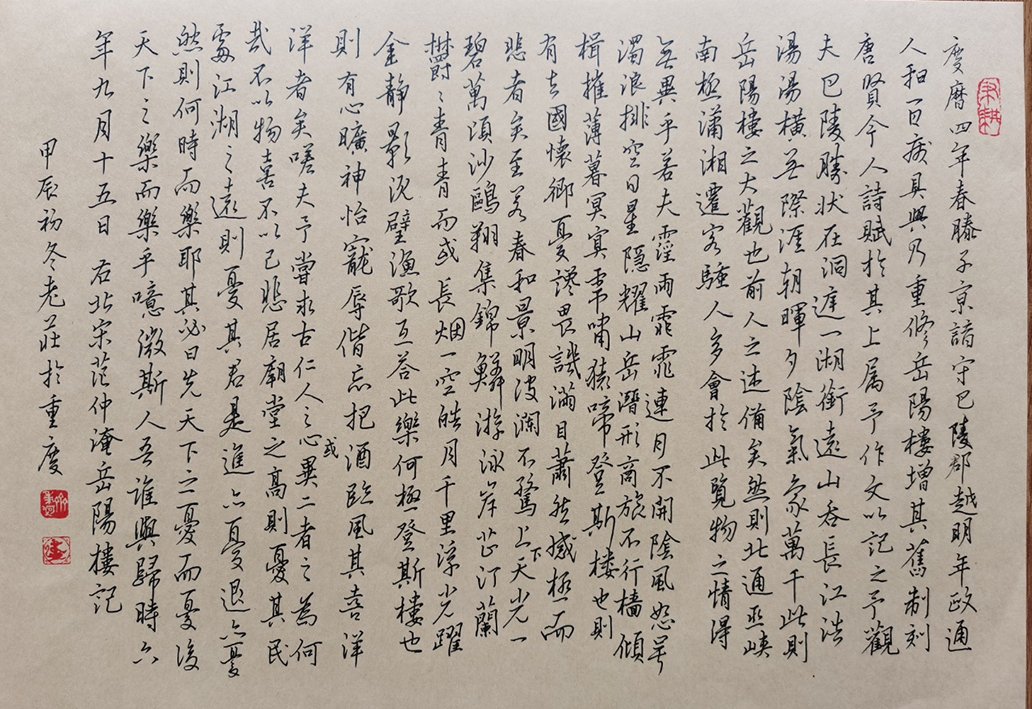 慶曆四年春滕子京謫守巴陵郡越明年政通
人和百廢具興乃重修岳陽樓增其舊制刻
唐賢今人詩賦於其上属予作文以記之予觀
夫巴陵勝狀在洞庭一湖銜遠山吞長江浩
湯湯橫無際涯朝暉夕陰氣象萬千此則
岳陽樓之大觀也前人之述備矣然則北通巫峽
南極瀟湘遷客騷人多會於此覽物之情得
無異乎若夫霪雨霏霏連月不開陰風怒号
濁浪排空日星隱耀山岳潛形商旅不行檣傾
楫摧薄暮冥冥虎嘯猿啼登斯樓也則
有去國懷鄉憂讒畏譏滿目蕭然感極而
悲者矣至若春和景明波瀾不驚上下天光一
碧萬頃沙鷗翔集錦鱗游泳岸芷汀蘭
鬱〻青青而或長烟一空皓月千里浮光躍
金靜影沉璧漁歌互答此樂何極登斯樓也
則有心曠神怡寵辱偕忘把酒臨風其喜洋
洋者矣嗟夫予嘗求古仁人之心或異二者之為何
哉不以物喜不以己悲居廟堂之高則憂其民
處江湖之遠則憂其君是進亦憂退亦憂
然則何時而樂耶其必曰先天下之憂而憂後
天下之樂而樂乎噫微斯人吾誰與歸時六
年九月十五日 右北宋范仲淹岳陽樓記
甲辰初冬老莊於重慶